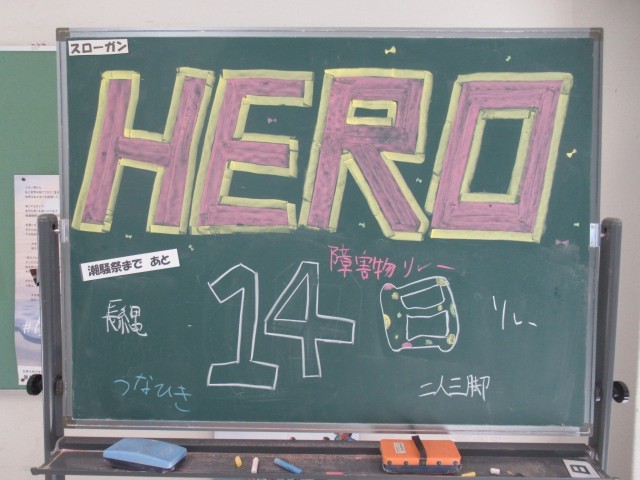 スローガン
HERO
潮騒祭まで あと
14日
障害物リレー
長縄
リレー
つなひき
二人三脚